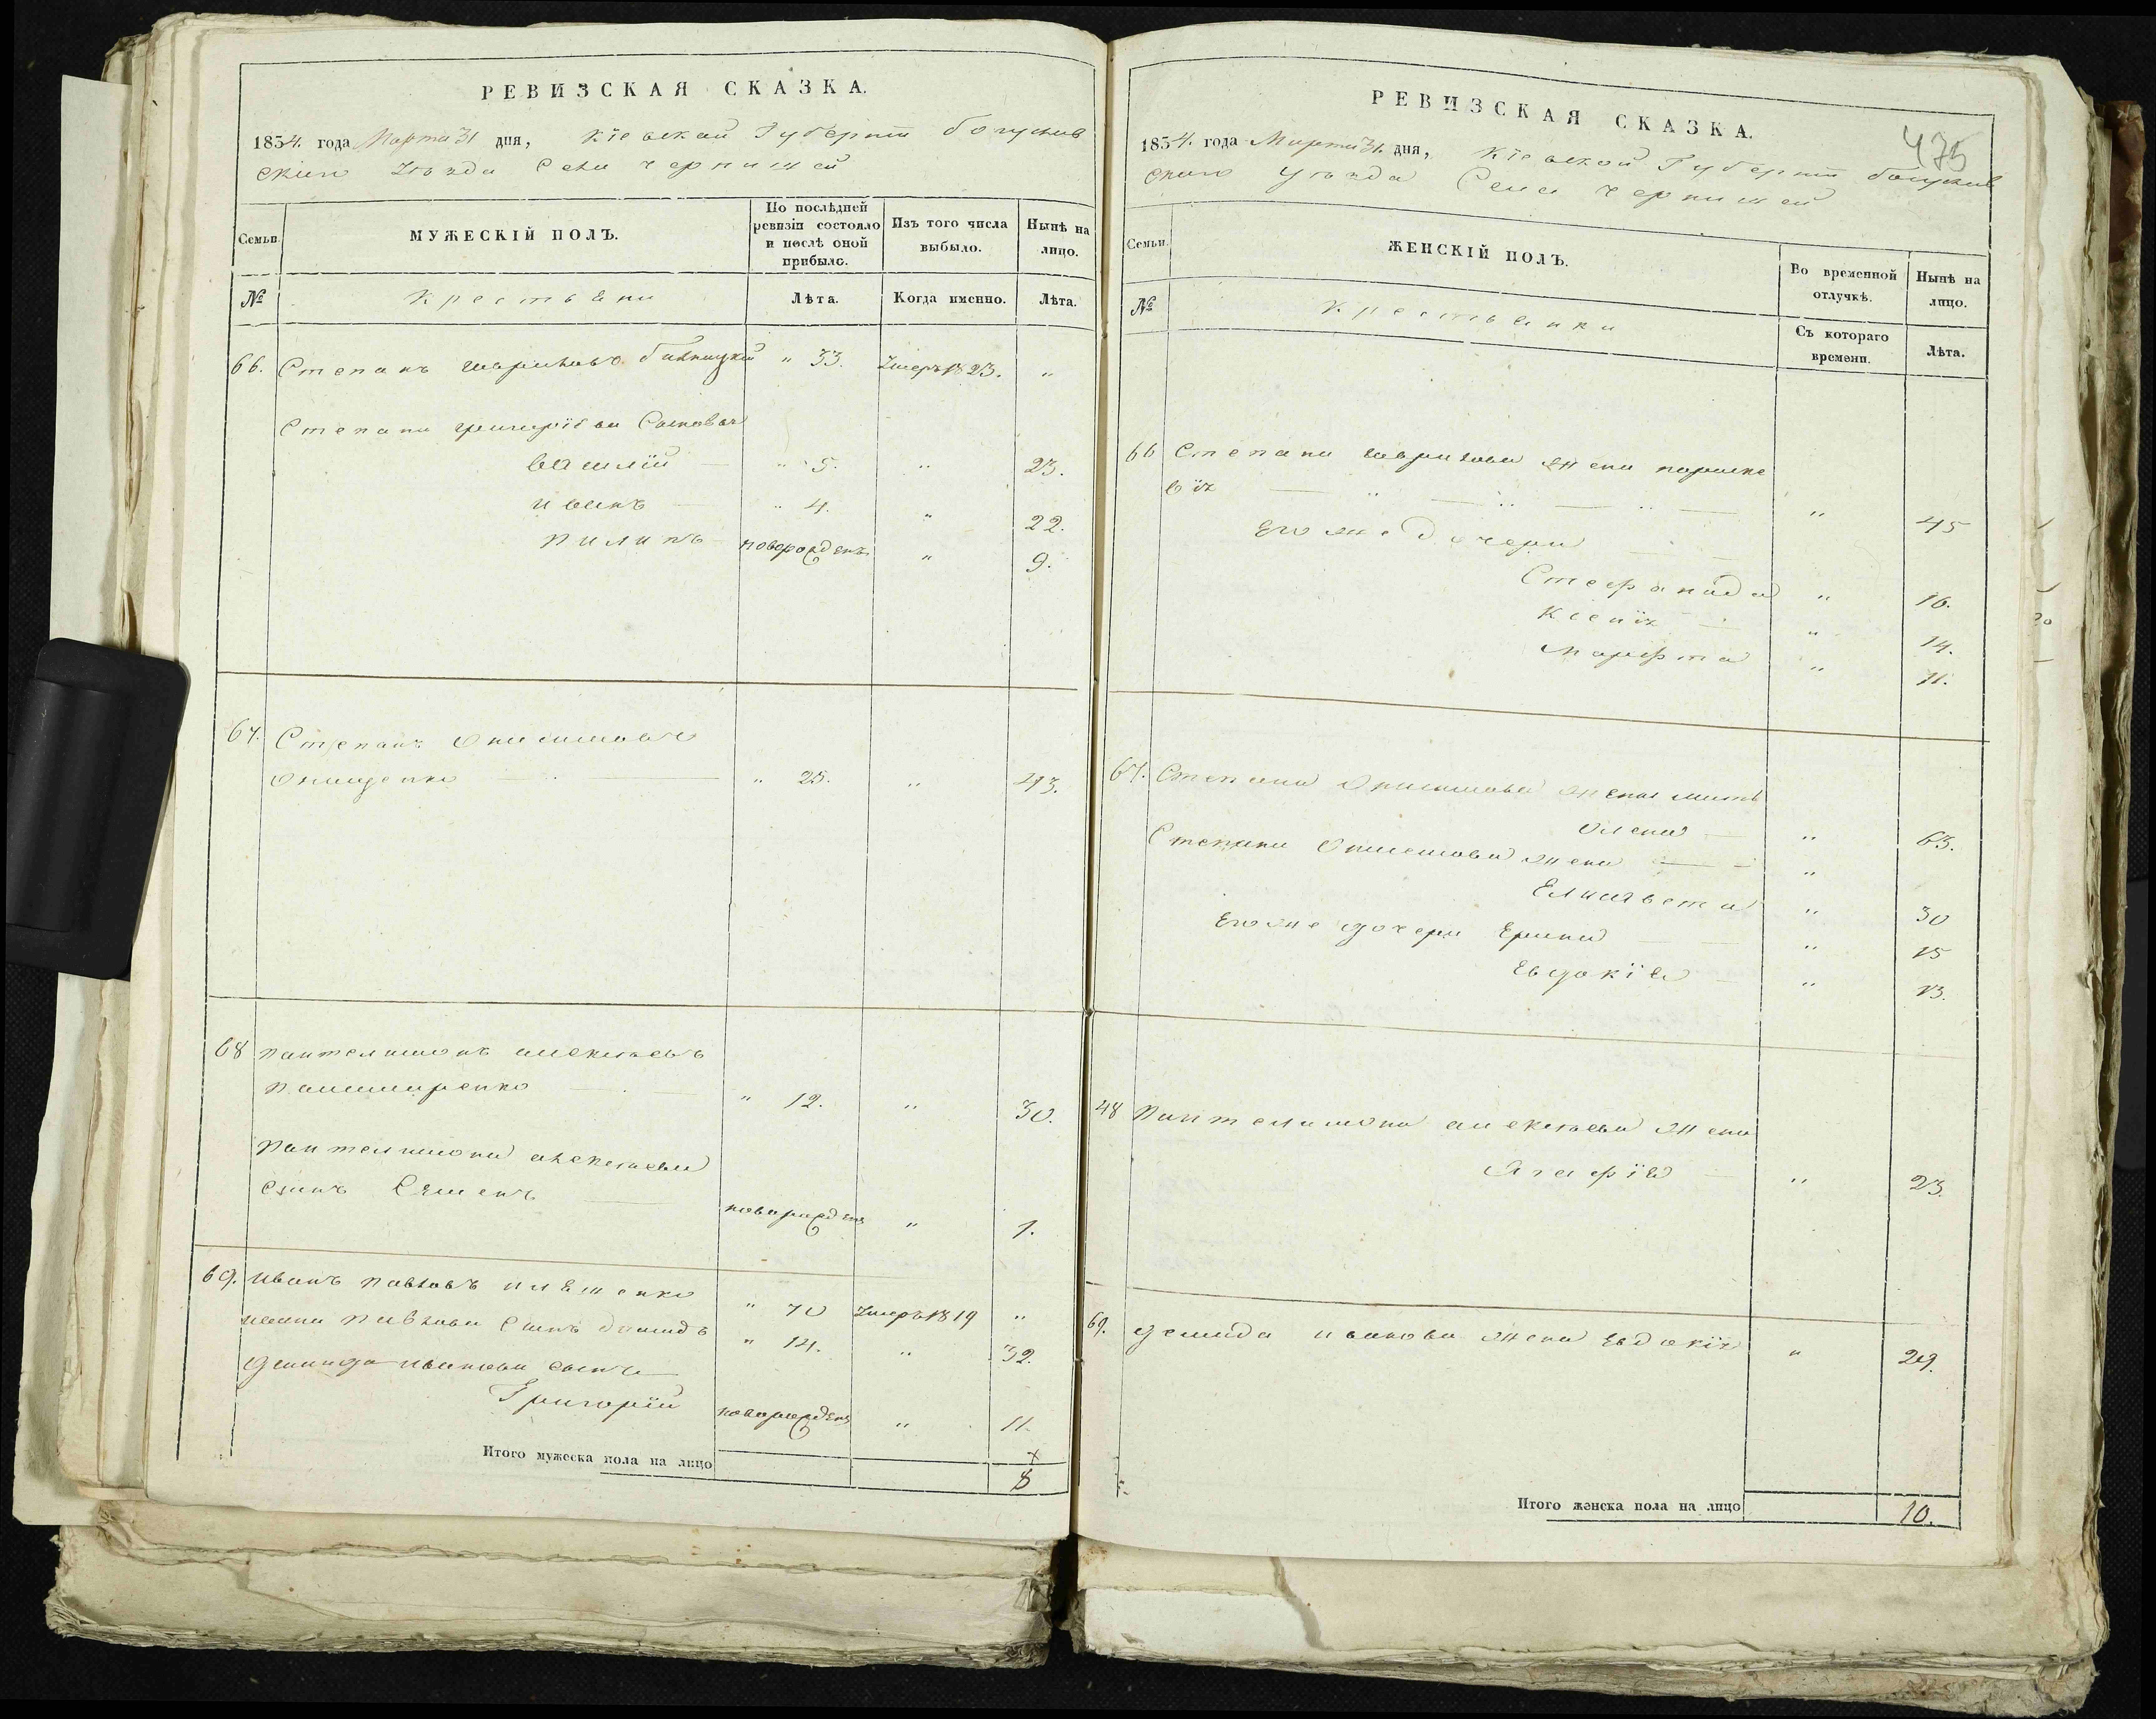 РЕВИЗСКАЯ СКАЗКА.
1854. года Марта 31 дня, Кіевской Губерніи богуслав
скаго Уѣзда Села черниш ей
Семьи.
МУЖЕСКІЙ ПОЛЪ.
По послѣдней
ревизіи состояло
и послѣ оной
прибыло.
Изъ того числа
выбыло.
Нынѣ на
лицо.
№
крестьяни
Лѣта.
Когда именно.
Лѣта.
66. Степанъ " 33. Умеръ 1823. "
Степана Сыновья
Василій " 5. " 23.
иванъ " 4. " 22.
пилипъ новорожденъ " 9.
67. Степанъ Онисимовъ
Онищенко " 25. " 43.
68 пантелимонъ алексѣевъ
" 12. " 30.
пантелимона алексѣева
сынъ Семенъ новорожденъ " 1.
69. иванъ павловъ " 70 Умеръ 1819 "
ивана павлова сынъ демидъ " 14. " 32.
демида иванова сынъ
Григорій новорожденъ " 11.
Итого мужеска пола на лицо 8
РЕВИЗСКАЯ СКАЗКА.
475
1854. года Марта 31. дня, Кіевской Губерніи богуслав
скаго уѣзда Села черниш ей
Семьи.
ЖЕНСКІЙ ПОЛЪ.
Во временной
отлучкѣ.
Нынѣ на
лицо.
№
крестьянки
Съ котораго
времени.
Лѣта.
66 Степана гаврилова жена параске
вія " 45
Его же дочери
Стефанида " 16.
Ксенія " 14.
марфта " 11.
67. Степана Онисимова мать
Олена " 63.
Степана Онисимова жена "
Елисавета " 30
Его же дочери Ерина " 15
Евдокія " 13.
48 пантелимона алексѣева жена
Агафія " 23.
69. демида иванова жена Евдокія " 29.
Итого женска пола на лицо 10.